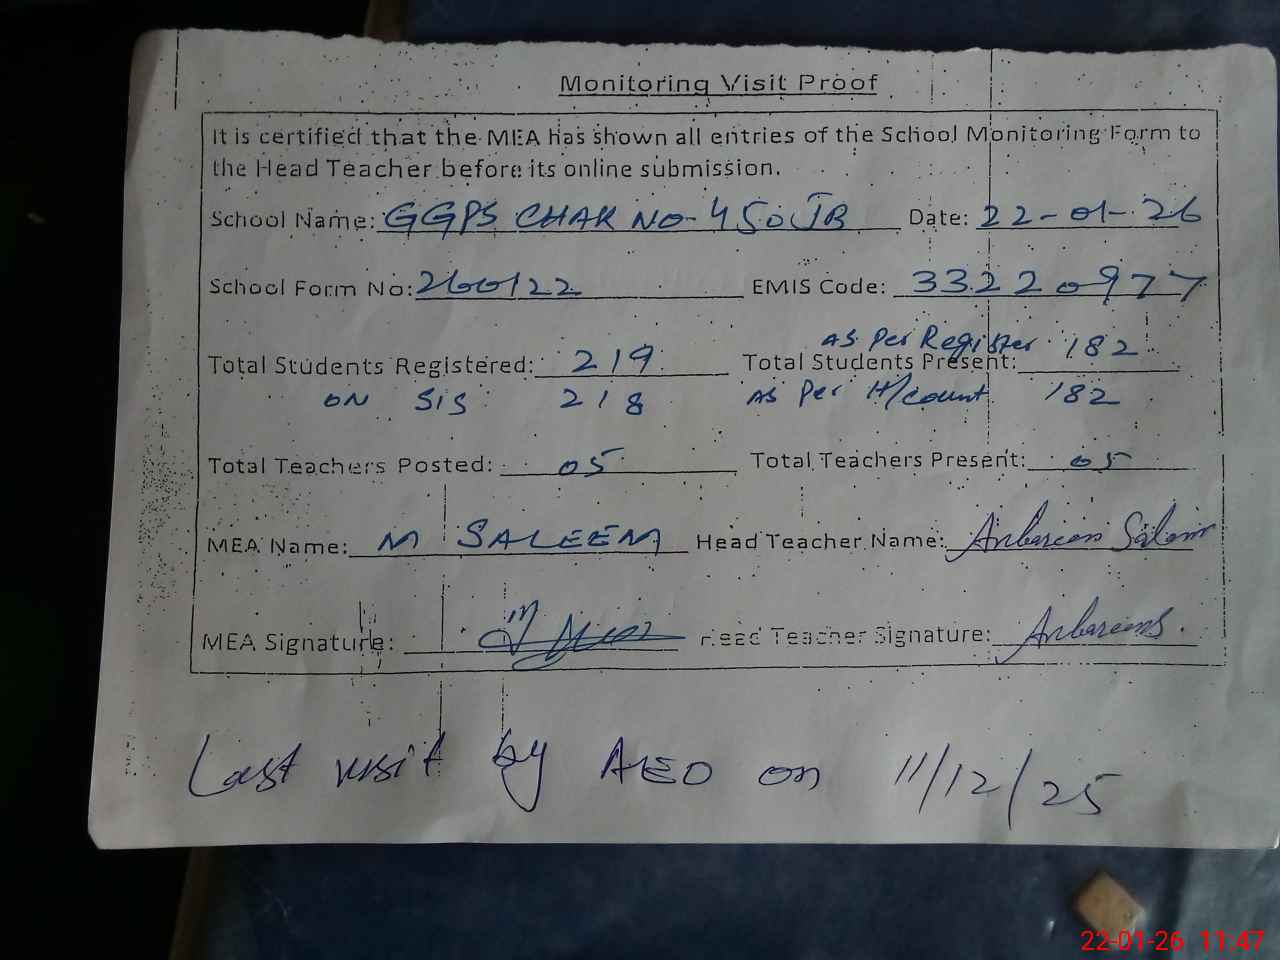 Monitoring Visit Proof
It is certified that the MEA has shown all entries of the School Monitoring Form to
the Head Teacher before its online submission.
School Name: GGPS CHAK NO-450JB Date: 22-01-26
School Form No: 2600122 EMIS Code: 33220977
As Per Register 182
Total Students Registered: 219 Total Students Present:
ON SIS 218 As Per H/count 182
Total Teachers Posted: 05 Total Teachers Present: 05
MEA Name: M SALEEM Head Teacher Name: Anbareen Salam
MEA Signature: Head Teacher Signature: Anbareens.
Last visit by AEO on 11/12/25
22-01-26 11:47